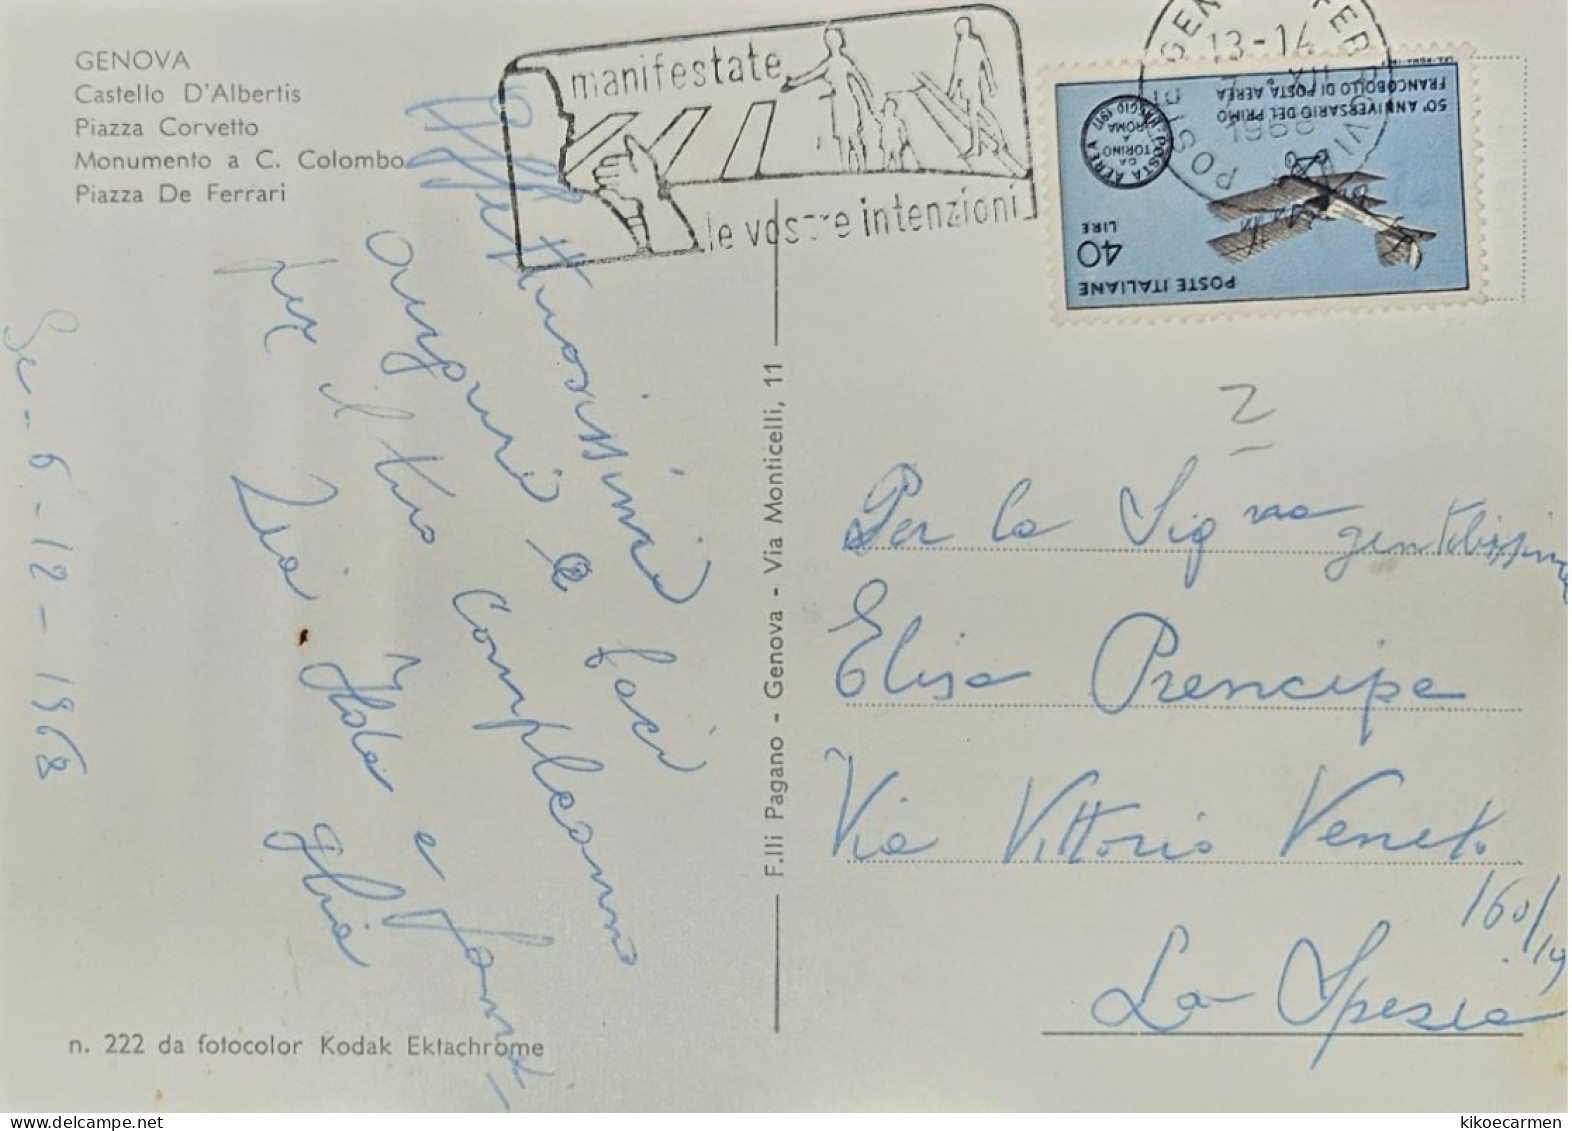 GENOVA
Castello D'Albertis
Piazza Corvetto
Monumento a C. Colombo
Piazza De Ferrari
manifestate
le vostre intenzioni
13-14
1968
50° ANNIVERSARIO DEL PRIMO
FRANCOBOLLO DI POSTA AEREA
POSTA AEREA
DA
TORINO
A
ROMA
MAGGIO 1917
LIRE
40
POSTE ITALIANE
Ge - 6 - 12 - 1968
Affettuosissimi
auguri e baci
per il tuo compleanno
Zia Iole e famiglia
F.lli Pagano - Genova - Via Monticelli, 11
Per la Sig.ra gentilissima
Elisa Prencipe
Via Vittorio Veneto
160/19
La Spezia
n. 222 da fotocolor Kodak Ektachrome
kikoecarmen